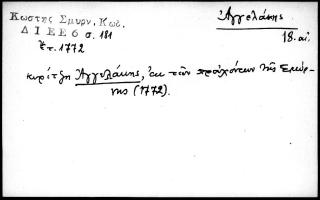 Κωστής Σμυρν. Κωδ.
Δ Ι Ε Ε 6 σ. 181
ἔτ. 1772
Ἀγγελάκης
18. αἰ.
κυρίτζη Ἀγγελάκης, ἐκ τῶν προὐχόντων τῆς Σμύρ-
νης (1772).